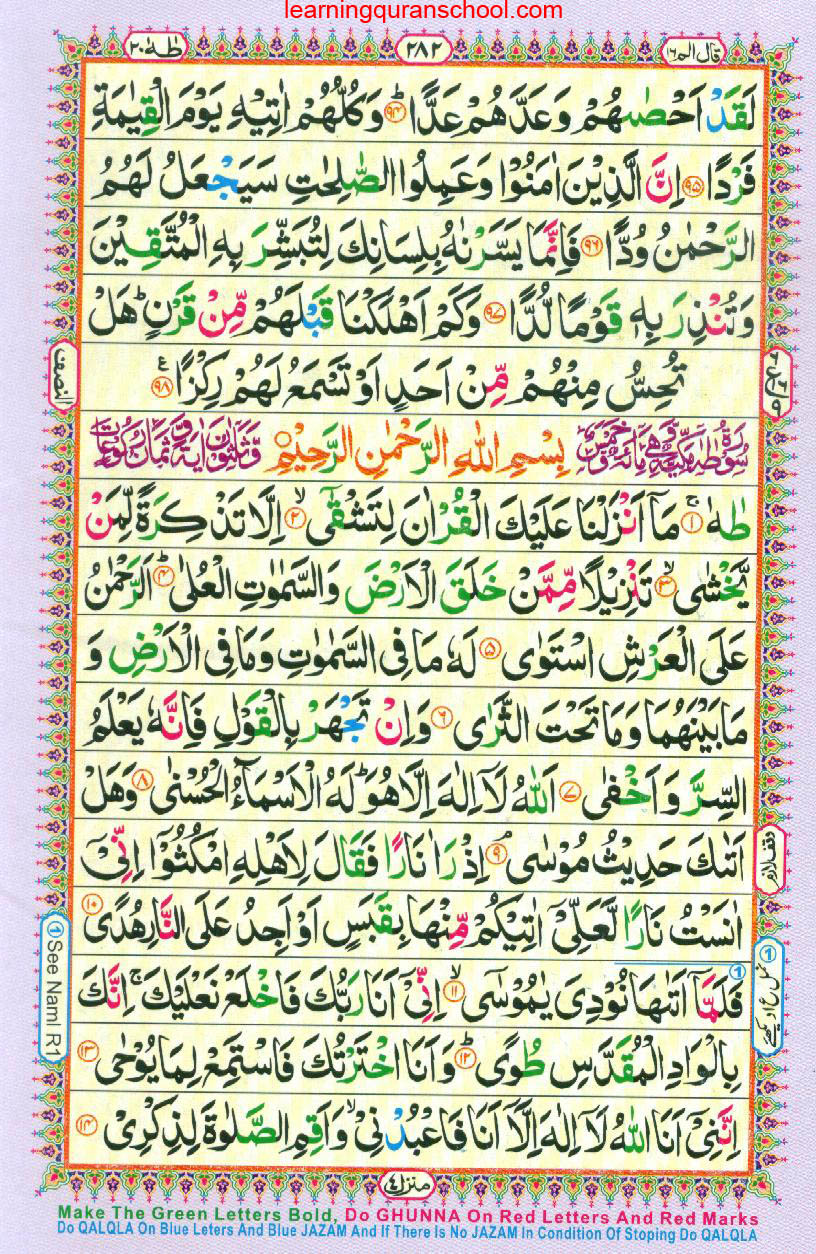 learningquranschool.com
طٰهٰ ٢٠
٢٨٢
قال الم ١٦
لَقَدْ اَحْصٰىهُمْ وَعَدَّهُمْ عَدًّا ؕ ﴿۹۴﴾ وَكُلُّهُمْ اٰتِیْهِ یَوْمَ الْقِیٰمَةِ
فَرْدًا ﴿۹۵﴾ اِنَّ الَّذِیْنَ اٰمَنُوْا وَعَمِلُوا الصّٰلِحٰتِ سَیَجْعَلُ لَهُمُ
الرَّحْمٰنُ وُدًّا ﴿۹۶﴾ فَاِنَّمَا یَسَّرْنٰهُ بِلِسَانِكَ لِتُبَشِّرَ بِهِ الْمُتَّقِیْنَ
وَتُنْذِرَ بِهٖ قَوْمًا لُّدًّا ﴿۹۷﴾ وَكَمْ اَهْلَكْنَا قَبْلَهُمْ مِّنْ قَرْنٍ ؕ هَلْ
تُحِسُّ مِنْهُمْ مِّنْ اَحَدٍ اَوْ تَسْمَعُ لَهُمْ رِكْزًا ﴿۹۸﴾ ع
النصف
بِسْمِ اللّٰهِ الرَّحْمٰنِ الرَّحِیْمِ
طٰهٰ ۚ ﴿۱﴾ مَاۤ اَنْزَلْنَا عَلَیْكَ الْقُرْاٰنَ لِتَشْقٰۤی ۙ ﴿۲﴾ اِلَّا تَذْكِرَةً لِّمَنْ
یَّخْشٰی ۙ ﴿۳﴾ تَنْزِیْلًا مِّمَّنْ خَلَقَ الْاَرْضَ وَالسَّمٰوٰتِ الْعُلٰی ؕ ﴿۴﴾ اَلرَّحْمٰنُ
عَلَی الْعَرْشِ اسْتَوٰی ﴿۵﴾ لَهٗ مَا فِی السَّمٰوٰتِ وَمَا فِی الْاَرْضِ وَ
مَا بَیْنَهُمَا وَمَا تَحْتَ الثَّرٰی ﴿۶﴾ وَاِنْ تَجْهَرْ بِالْقَوْلِ فَاِنَّهٗ یَعْلَمُ
السِّرَّ وَاَخْفٰی ﴿۷﴾ اَللّٰهُ لَاۤ اِلٰهَ اِلَّا هُوَ ؕ لَهُ الْاَسْمَآءُ الْحُسْنٰی ﴿۸﴾ وَهَلْ
اَتٰىكَ حَدِیْثُ مُوْسٰی ۘ ﴿۹﴾ اِذْ رَاٰ نَارًا فَقَالَ لِاَهْلِهِ امْكُثُوْۤا اِنِّیْۤ
اٰنَسْتُ نَارًا لَّعَلِّیْۤ اٰتِیْكُمْ مِّنْهَا بِقَبَسٍ اَوْ اَجِدُ عَلَی النَّارِ هُدًی ﴿۱۰﴾
فَلَمَّاۤ اَتٰىهَا نُوْدِیَ یٰمُوْسٰی ؕ ﴿۱۱﴾ اِنِّیْۤ اَنَا رَبُّكَ فَاخْلَعْ نَعْلَیْكَ ۚ اِنَّكَ
بِالْوَادِ الْمُقَدَّسِ طُوًی ؕ ﴿۱۲﴾ وَاَنَا اخْتَرْتُكَ فَاسْتَمِعْ لِمَا یُوْحٰی ﴿۱۳﴾
اِنَّنِیْۤ اَنَا اللّٰهُ لَاۤ اِلٰهَ اِلَّاۤ اَنَا فَاعْبُدْنِیْ ۙ وَاَقِمِ الصَّلٰوةَ لِذِكْرِیْ ﴿۱۴﴾
وقف لازم
① See Naml R1
①
منزل ٤
Make The Green Letters Bold, Do GHUNNA On Red Letters And Red Marks
Do QALQLA On Blue Leters And Blue JAZAM And If There Is No JAZAM In Condition Of Stoping Do QALQLA